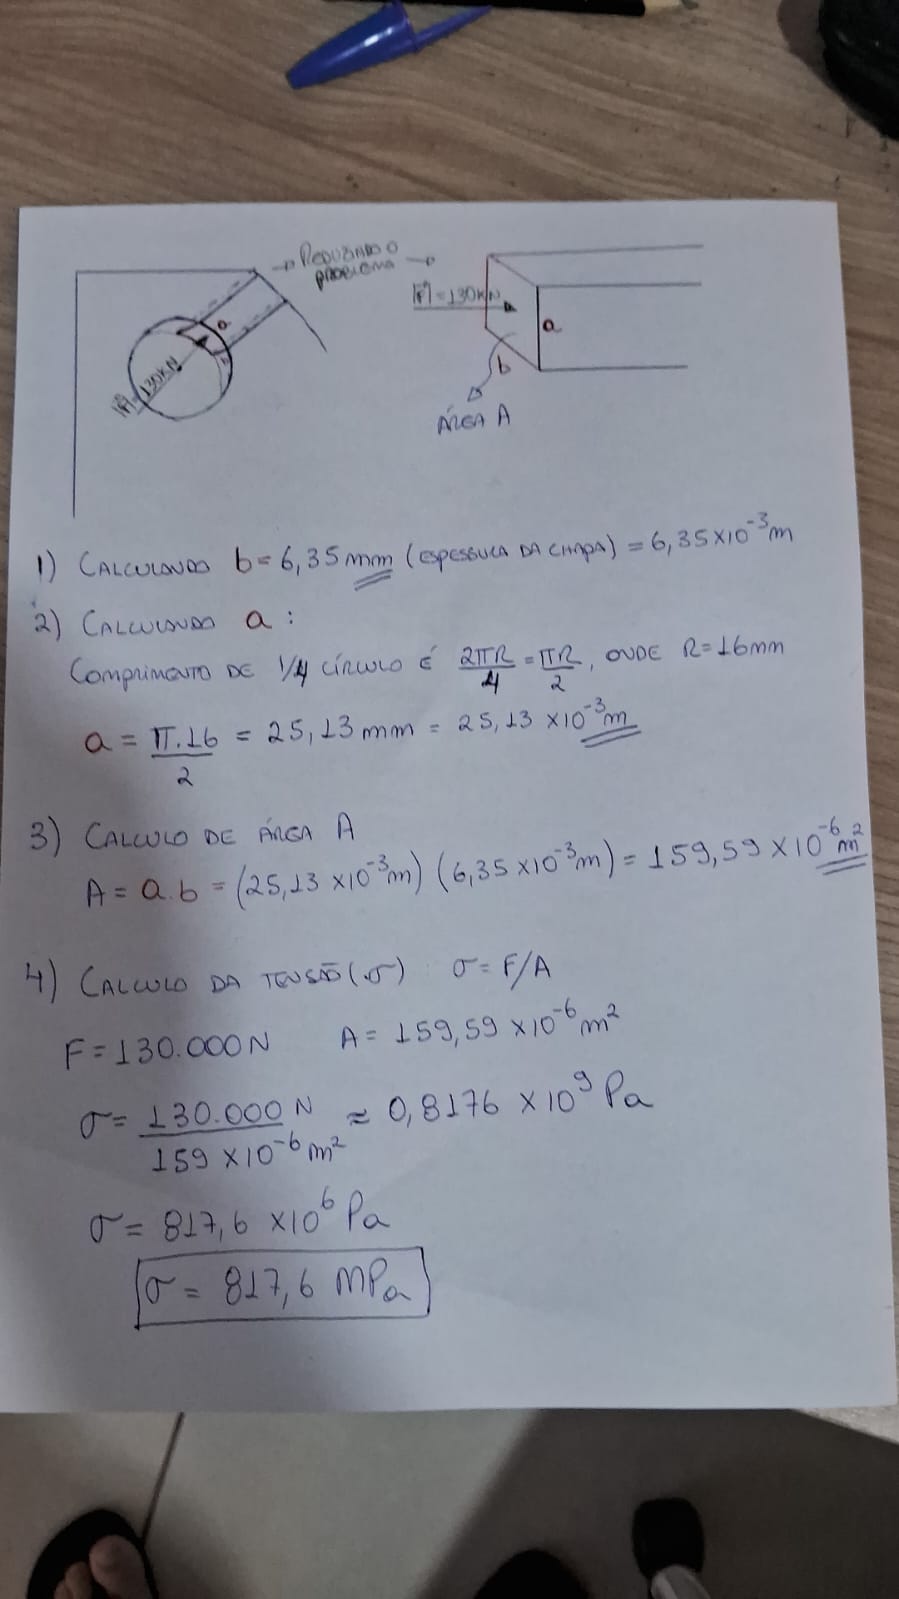 → REDUZINDO O PROBLEMA →
|F⃗| = 130KN
a
|F⃗| = 130KN
a
b
ÁREA A
1) CALCULANDO b = 6,35 mm (ESPESSURA DA CHAPA) = 6,35 x10⁻³ m
2) CALCULANDO a :
COMPRIMENTO DE 1/4 CÍRCULO É 2πR/4 = πR/2, ONDE R = 16mm
a = π.16/2 = 25,13 mm = 25,13 x10⁻³ m
3) CALCULO DE ÁREA A
A = a.b = (25,13 x10⁻³m) (6,35 x10⁻³m) = 159,59 x10⁻⁶ m²
4) CALCULO DA TENSÃO (σ) σ = F/A
F = 130.000 N A = 159,59 x10⁻⁶ m²
σ = 130.000 N / 159 x10⁻⁶ m² ≈ 0,8176 x10⁹ Pa
σ = 817,6 x10⁶ Pa
σ = 817,6 MPa